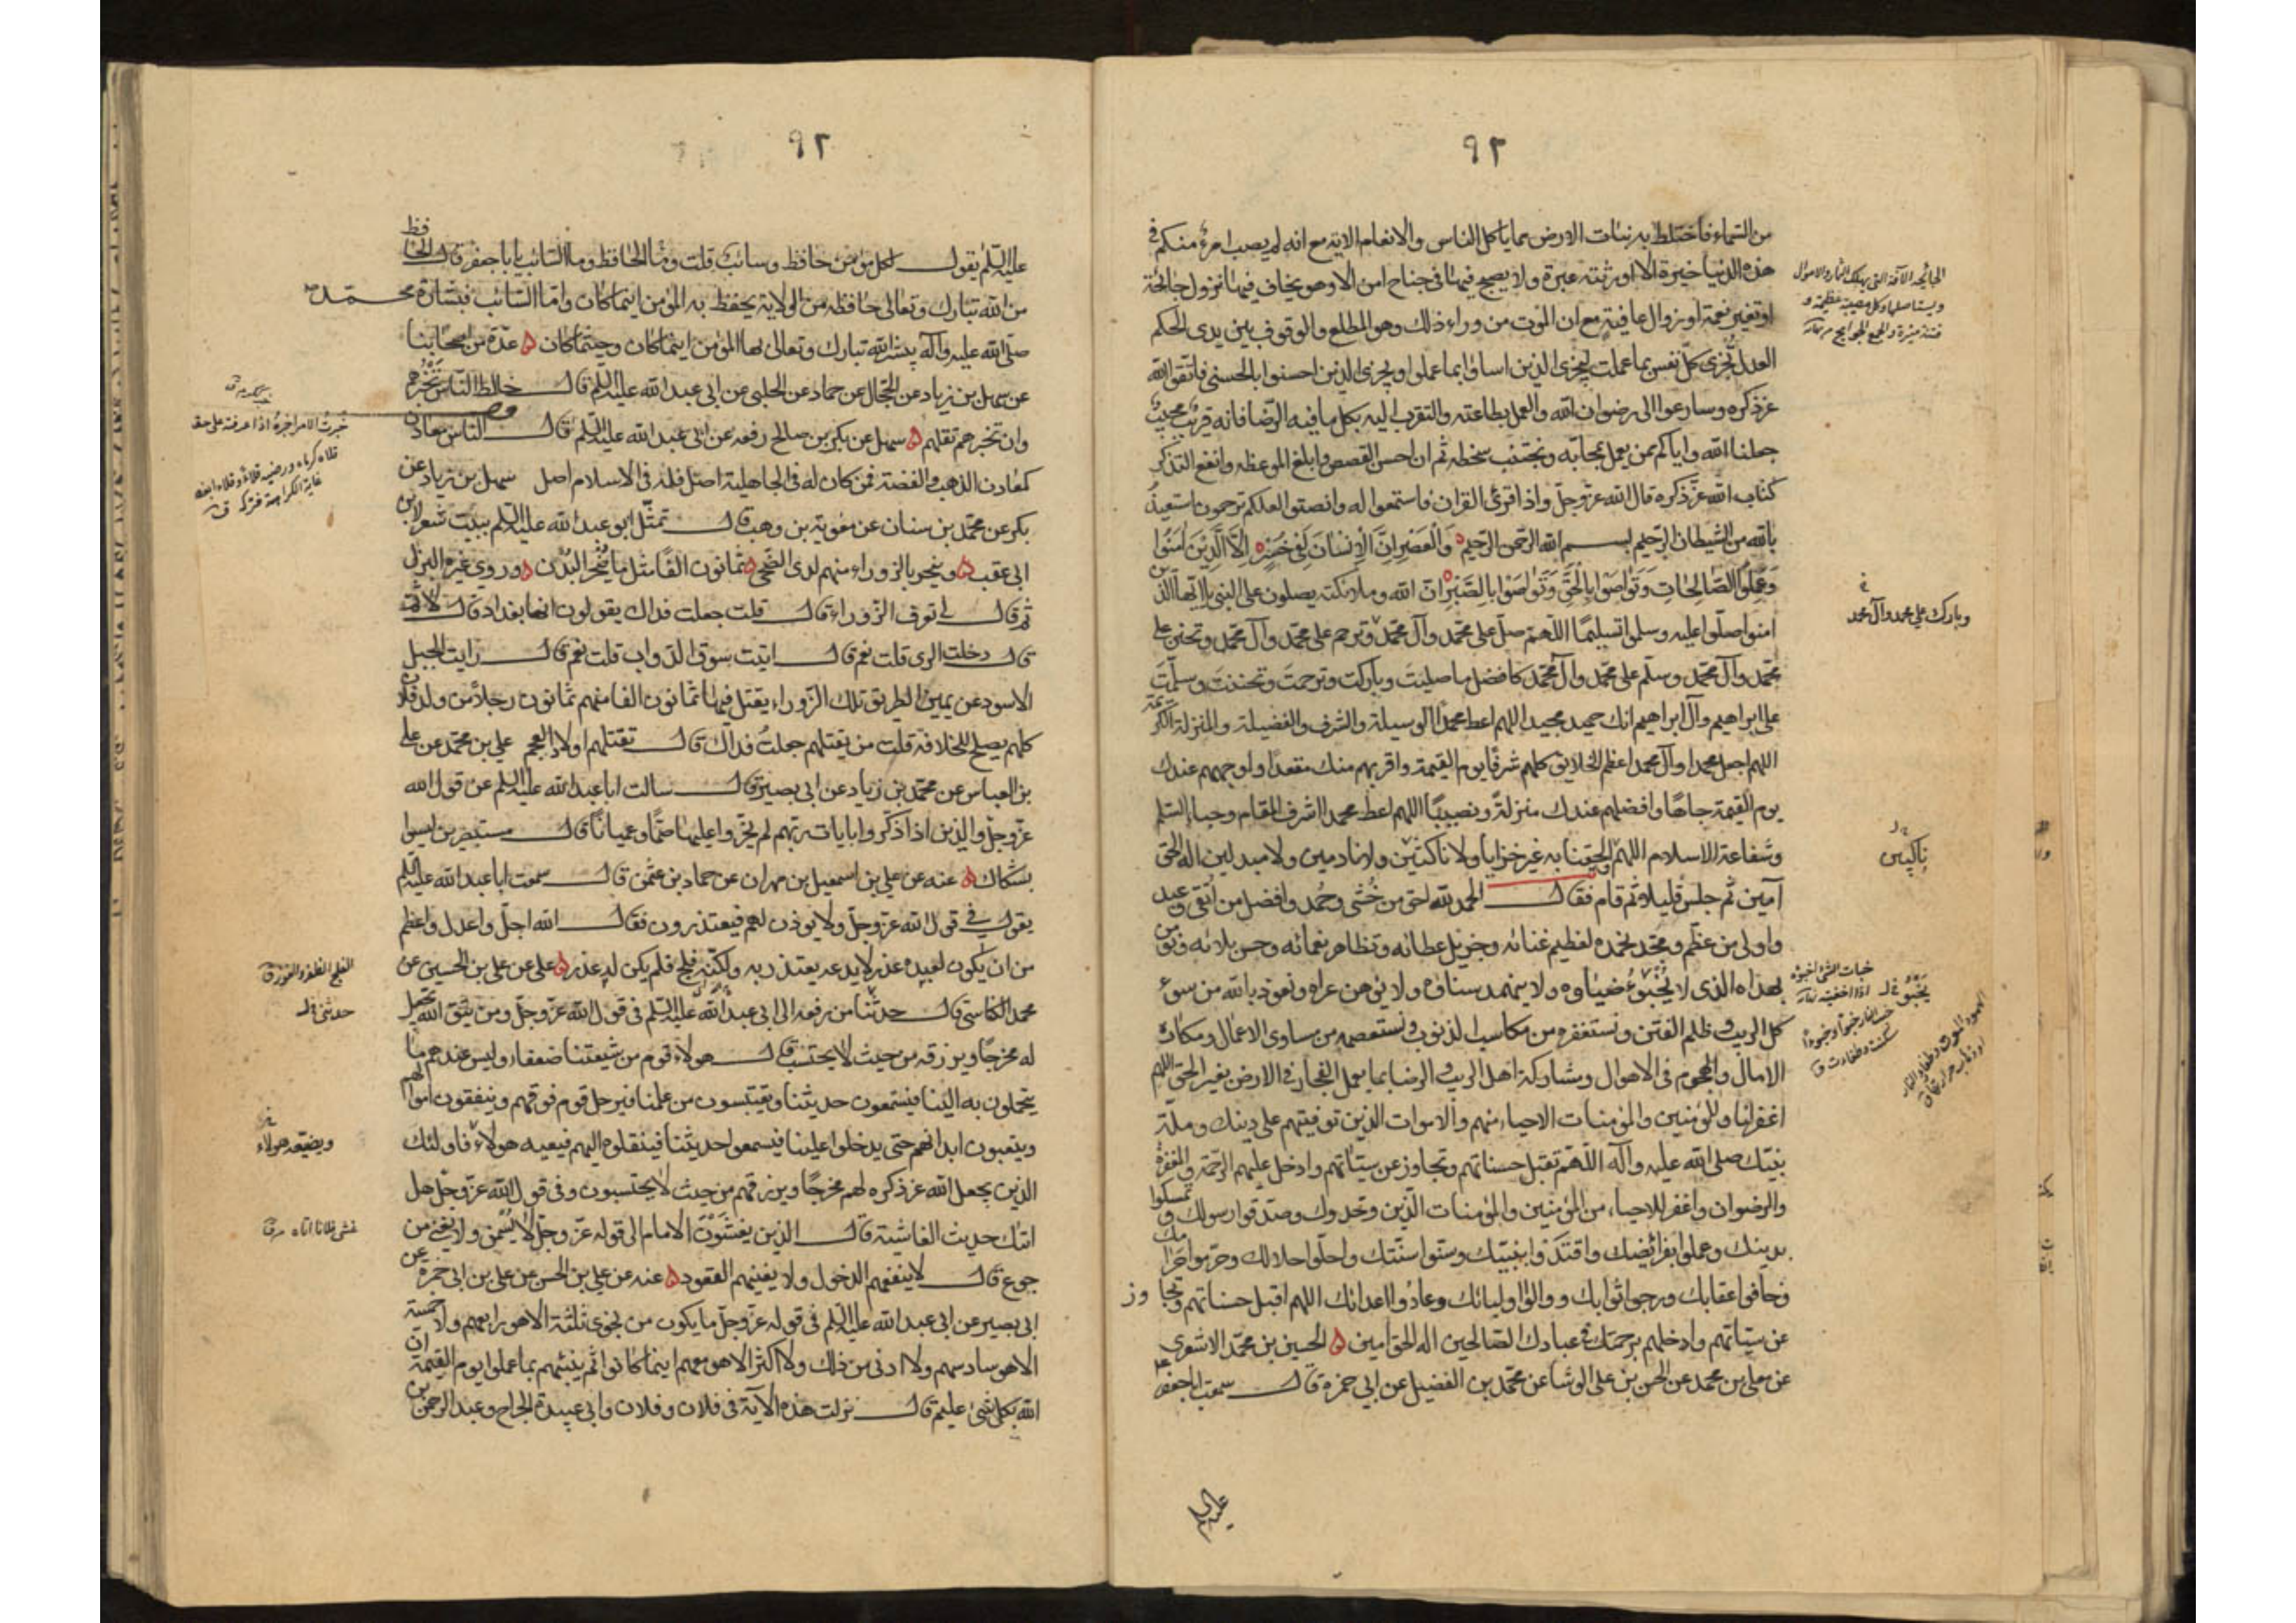 ٩٢
من السماء فاختلط به نبات الارض مما ياكل الناس والانعام الاية مع انه لم يصب امرؤ منكم في
هذه الدنيا خيرة الا اورثته عبرة ولا يصبح فيها في جناح امن الا وهو يخاف فيها نزول جائحة
او تغير نعمة او زوال عافية مع ان الموت من وراء ذلك وهو المطلع والوقوف بين يدي الحكم
العدل تجزى كل نفس بما عملت ليجزي الذين اساؤا بما عملوا ويجزي الذين احسنوا بالحسنى فاتقوا الله
عز ذكره وسارعوا الى رضوان الله والعمل بطاعته والتقرب اليه بكل ما فيه الرضا فانه قريب مجيب
جعلنا الله واياكم ممن يعمل بمحابه ويجتنب سخطه ثم ان احسن القصص وابلغ الموعظة وانفع التذكر
كتاب الله عز ذكره قال الله عز وجل واذا قرئ القران فاستمعوا له وانصتوا لعلكم ترحمون استعيذ
بالله من الشيطان الرجيم بسم الله الرحمن الرحيم والعصر ان الانسان لفي خسر الا الذين امنوا
وعملوا الصالحات وتواصوا بالحق وتواصوا بالصبر ان الله وملائكته يصلون على النبي يا ايها الذين
امنوا صلوا عليه وسلموا تسليما اللهم صل على محمد وآل محمد وترحم على محمد وآل محمد وتحنن على
محمد وآل محمد وسلم على محمد وآل محمد كافضل ما صليت وباركت وترحمت وتحننت وسلمت
على ابراهيم وآل ابراهيم انك حميد مجيد اللهم اعط محمدا الوسيلة والشرف والفضيلة والمنزلة الكريمة
اللهم اجعل محمدا وآل محمد اعظم الخلايق كلهم شرفا يوم القيمة واقربهم منك مقعدا واوجههم عندك
يوم القيمة جاها وافضلهم عندك منزلة ونصيبا اللهم اعط محمدا اشرف المقام وحباء السلم
وشفاعة الاسلام اللهم والحقنا به غير خزايا ولا ناكثين ولا نادمين ولا مبدلين اله الحق
آمين ثم جلس قليلا ثم قام فقال الحمد لله احق من خشي وحمد وافضل من اتقي وعبد
واولى من عظم ومجد نحمده لعظيم غنائه وجزيل عطائه وتظاهر نعمائه وحسن بلائه ونؤمن
بهداه الذي لا يخبو ضياؤه ولا يتمهد سناؤه ولا يوهن عراه ونعوذ بالله من سوء
كل الريب وظلم الفتن ونستغفره من مكاسب الذنوب ونستعصمه من مساوى الاعمال ومكاره
الامال والهجوم في الاهوال ومشاركة اهل الريب والرضا بما يعمل الفجار في الارض بغير الحق اللهم
اغفر لنا وللمؤمنين والمؤمنات الاحياء منهم والاموات الذين توفيتهم على دينك وملة
نبيك صلى الله عليه وآله اللهم تقبل حسناتهم وتجاوز عن سيئاتهم وادخل عليهم الرحمة والمغفرة
والرضوان واغفر للاحياء من المؤمنين والمؤمنات الذين وحدوك وصدقوا رسولك وتمسكوا
بدينك وعملوا بفرائضك واقتدوا بنبيك وسنوا سنتك واحلوا حلالك وحرموا حرامك
وخافوا عقابك ورجوا ثوابك ووالوا اولياءك وعادوا اعدائك اللهم اقبل حسناتهم وتجاوز
عن سيئاتهم وادخلهم برحمتك في عبادك الصالحين اله الحق امين الحسين بن محمد الاشعري
عن معلى بن محمد عن الحسن بن علي الوشا عن محمد بن الفضيل عن ابي حمزة قال سمعت ابا جعفر
وبارك على محمد وآل محمد
ناكبين
٩٢
عليه السلم يقول لكل مؤمن حافظ وسائب قلت وما الحافظ وما السائب يا ابا جعفر قال الحافظ
من الله تبارك وتعالى حافظه من الولاية يحفظ به المؤمن اينما كان واما السائب فبشارة محمد
صلى الله عليه وآله يبشر الله تبارك وتعالى بها المؤمن اينما كان وحيثما كان عدة من اصحابنا
عن سهل بن زياد عن الحجال عن حماد عن الحلبي عن ابي عبد الله عليه السلم قال خالط الناس تخبرهم
وان تخبرهم تقلهم سهل عن بكر بن صالح رفعه عن ابي عبد الله عليه السلم قال الناس معادن
كمعادن الذهب والفضة فمن كان له في الجاهلية اصل فله في الاسلام اصل سهل بن زياد عن
بكر عن محمد بن سنان عن معوية بن وهب قال تمثل ابو عبد الله عليه السلم ببيت شعر لابن
ابي عقب وينحر بالزوراء منهم لدى الضحى ثمانون الفا مثل ما ينحر البدن وروي غيره البزل
ثم قال لي تعرف الزوراء قال قلت جعلت فداك يقولون انها بغداد قال لا ثم
قال دخلت الري قلت نعم قال اتيت سوق الدواب قلت نعم قال رايت الجبل
الاسود عن يمين الطريق تلك الزوراء يقتل فيها ثمانون الفا منهم ثمانون رجلا من ولد فلان
كلهم يصلح للخلافة قلت من يقتلهم جعلت فداك قال تقتلهم اولاد العجم علي بن محمد عن علي
بن العباس عن محمد بن زياد عن ابي بصير قال سالت ابا عبد الله عليه السلم عن قول الله
عز وجل والذين اذا ذكروا بايات ربهم لم يخروا عليها صما وعميانا قال مستبصرين ليسوا
بشكاك عنه عن علي بن اسمعيل بن مهران عن حماد بن عثمن قال سمعت ابا عبد الله عليه السلم
يقول في قول الله عز وجل ولا يوذن لهم فيعتذرون فقال الله اجل واعدل واعظم
من ان يكون لعبده عذر لا يدعه يعتذر به ولكنه فلج فلم يكن له عذر علي عن علي بن الحسين عن
محمد الكناسي قال حدثنا من رفعه الى ابي عبد الله عليه السلم في قول الله عز وجل ومن يتق الله يجعل
له مخرجا ويرزقه من حيث لا يحتسب قال هولاء قوم من شيعتنا ضعفاء وليس عندهم ما
يتحملون به الينا فيستمعون حديثنا ويقتبسون من علمنا فيرحل قوم فوقهم وينفقون اموالهم
ويتعبون ابدانهم حتى يدخلوا علينا فيسمعوا حديثنا فينقلوه اليهم فيعيه هولاء فاولئك
الذين يجعل الله عز ذكره لهم مخرجا ويرزقهم من حيث لا يحتسبون وفي قول الله عز وجل هل
اتيك حديث الغاشية قال الذين يغشون الامام الى قوله عز وجل لا يسمن ولا يغني من
جوع قال لا ينفعهم الدخول ولا يغنيهم القعود عنه عن علي بن الحسن عن علي بن ابي حمزة عن
ابي بصير عن ابي عبد الله عليه السلم في قوله عز وجل ما يكون من نجوى ثلثة الا هو رابعهم ولا خمسة
الا هو سادسهم ولا ادنى من ذلك ولا اكثر الا هو معهم اينما كانوا ثم ينبئهم بما عملوا يوم القيمة ان
الله بكل شئ عليم قال نزلت هذه الآية في فلان وفلان وابي عبيدة الجراح وعبد الرحمن بن
الفلج الظفر والفوز ق
ويضيعه هولاء